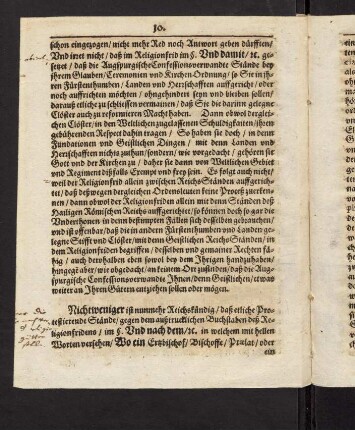 10.
schon eingezogen / nicht mehr Red noch Antwort geben dürfften /
Vnd irret nicht / daß im Religionfrid im §. Vnd damit / ꝛc. ge-
setzet / daß die Augspurgische Confessionsverwandte Stände bey
jhrem Glauben / Ceremonien vnd Kirchen-Ordnung / so Sie in jh-
ren Fürstenthumben / Landen vnd Herrschafften auffgericht / oder
noch auffrichten möchten / ohngehindert seyn vnd bleiben sollen /
darauß etliche zu schliessen vermainen / daß Sie die darinn gelegne
Clöster auch zu reformiern Macht haben. Dann obwol dergleichen
Clöster / in den Weltlichen zugelassenen Schuldigkaiten jhren
gebührenden Respect dahin tragen / So haben sie doch / in denen
Fundationen vnd Geistlichen Dingen / mit denen Landen vnd
Herrschafften nichts zuthun / sondern / wie vorgedacht / gehören sie
Gott vnd der Kirchen zu / daher sie dann von Weltlichen Gebiet
vnd Regiment dißfalls Exempt vnd frey sein. Es folgt auch nicht /
weil der Religionfrid allein zwischen Reichs Ständen auffgerich-
tet / daß deßwegen dergleichen Ordensleuten seine Profess zuerken-
nen / dann obwol der Religionfriden allein mit denen Ständen deß
Hailigen Römischen Reichs auffgerichtet / so können doch so gar die
Vnderthonen in denn bestimpten Fällen sich desselben gebrauchen /
vnd ist offenbar / daß die in andern Fürstenthumben vnd Landen ge-
legne Stifft vnd Clöster / mit denn Geistlichen Reichs Ständen / in
dem Religionfriden begriffen / desselben vnd gemainer Rechten fä-
hig / auch derohalben eben sowol bey dem Jhrigen handzuhaben /
hingegen aber / wie obgedacht / an keinem Ort zufinden / daß die Aug-
spurgische Confessionsverwandte Jhnen / denn Geistlichen / etwas
weiter an Jhren Gütern entziehen sollen oder mögen.
Nichtweniger ist nunmehr Reichskündig / daß etliche Pro-
testierende Stände / gegen dem außtrucklichen Buchstaben deß Re-
ligionfridens / im §. Vnd nach dem / ꝛc. in welchem mit hellen
Worten versehen / Wo ein Ertzbischof / Bischoffe / Prælat / oder
ein